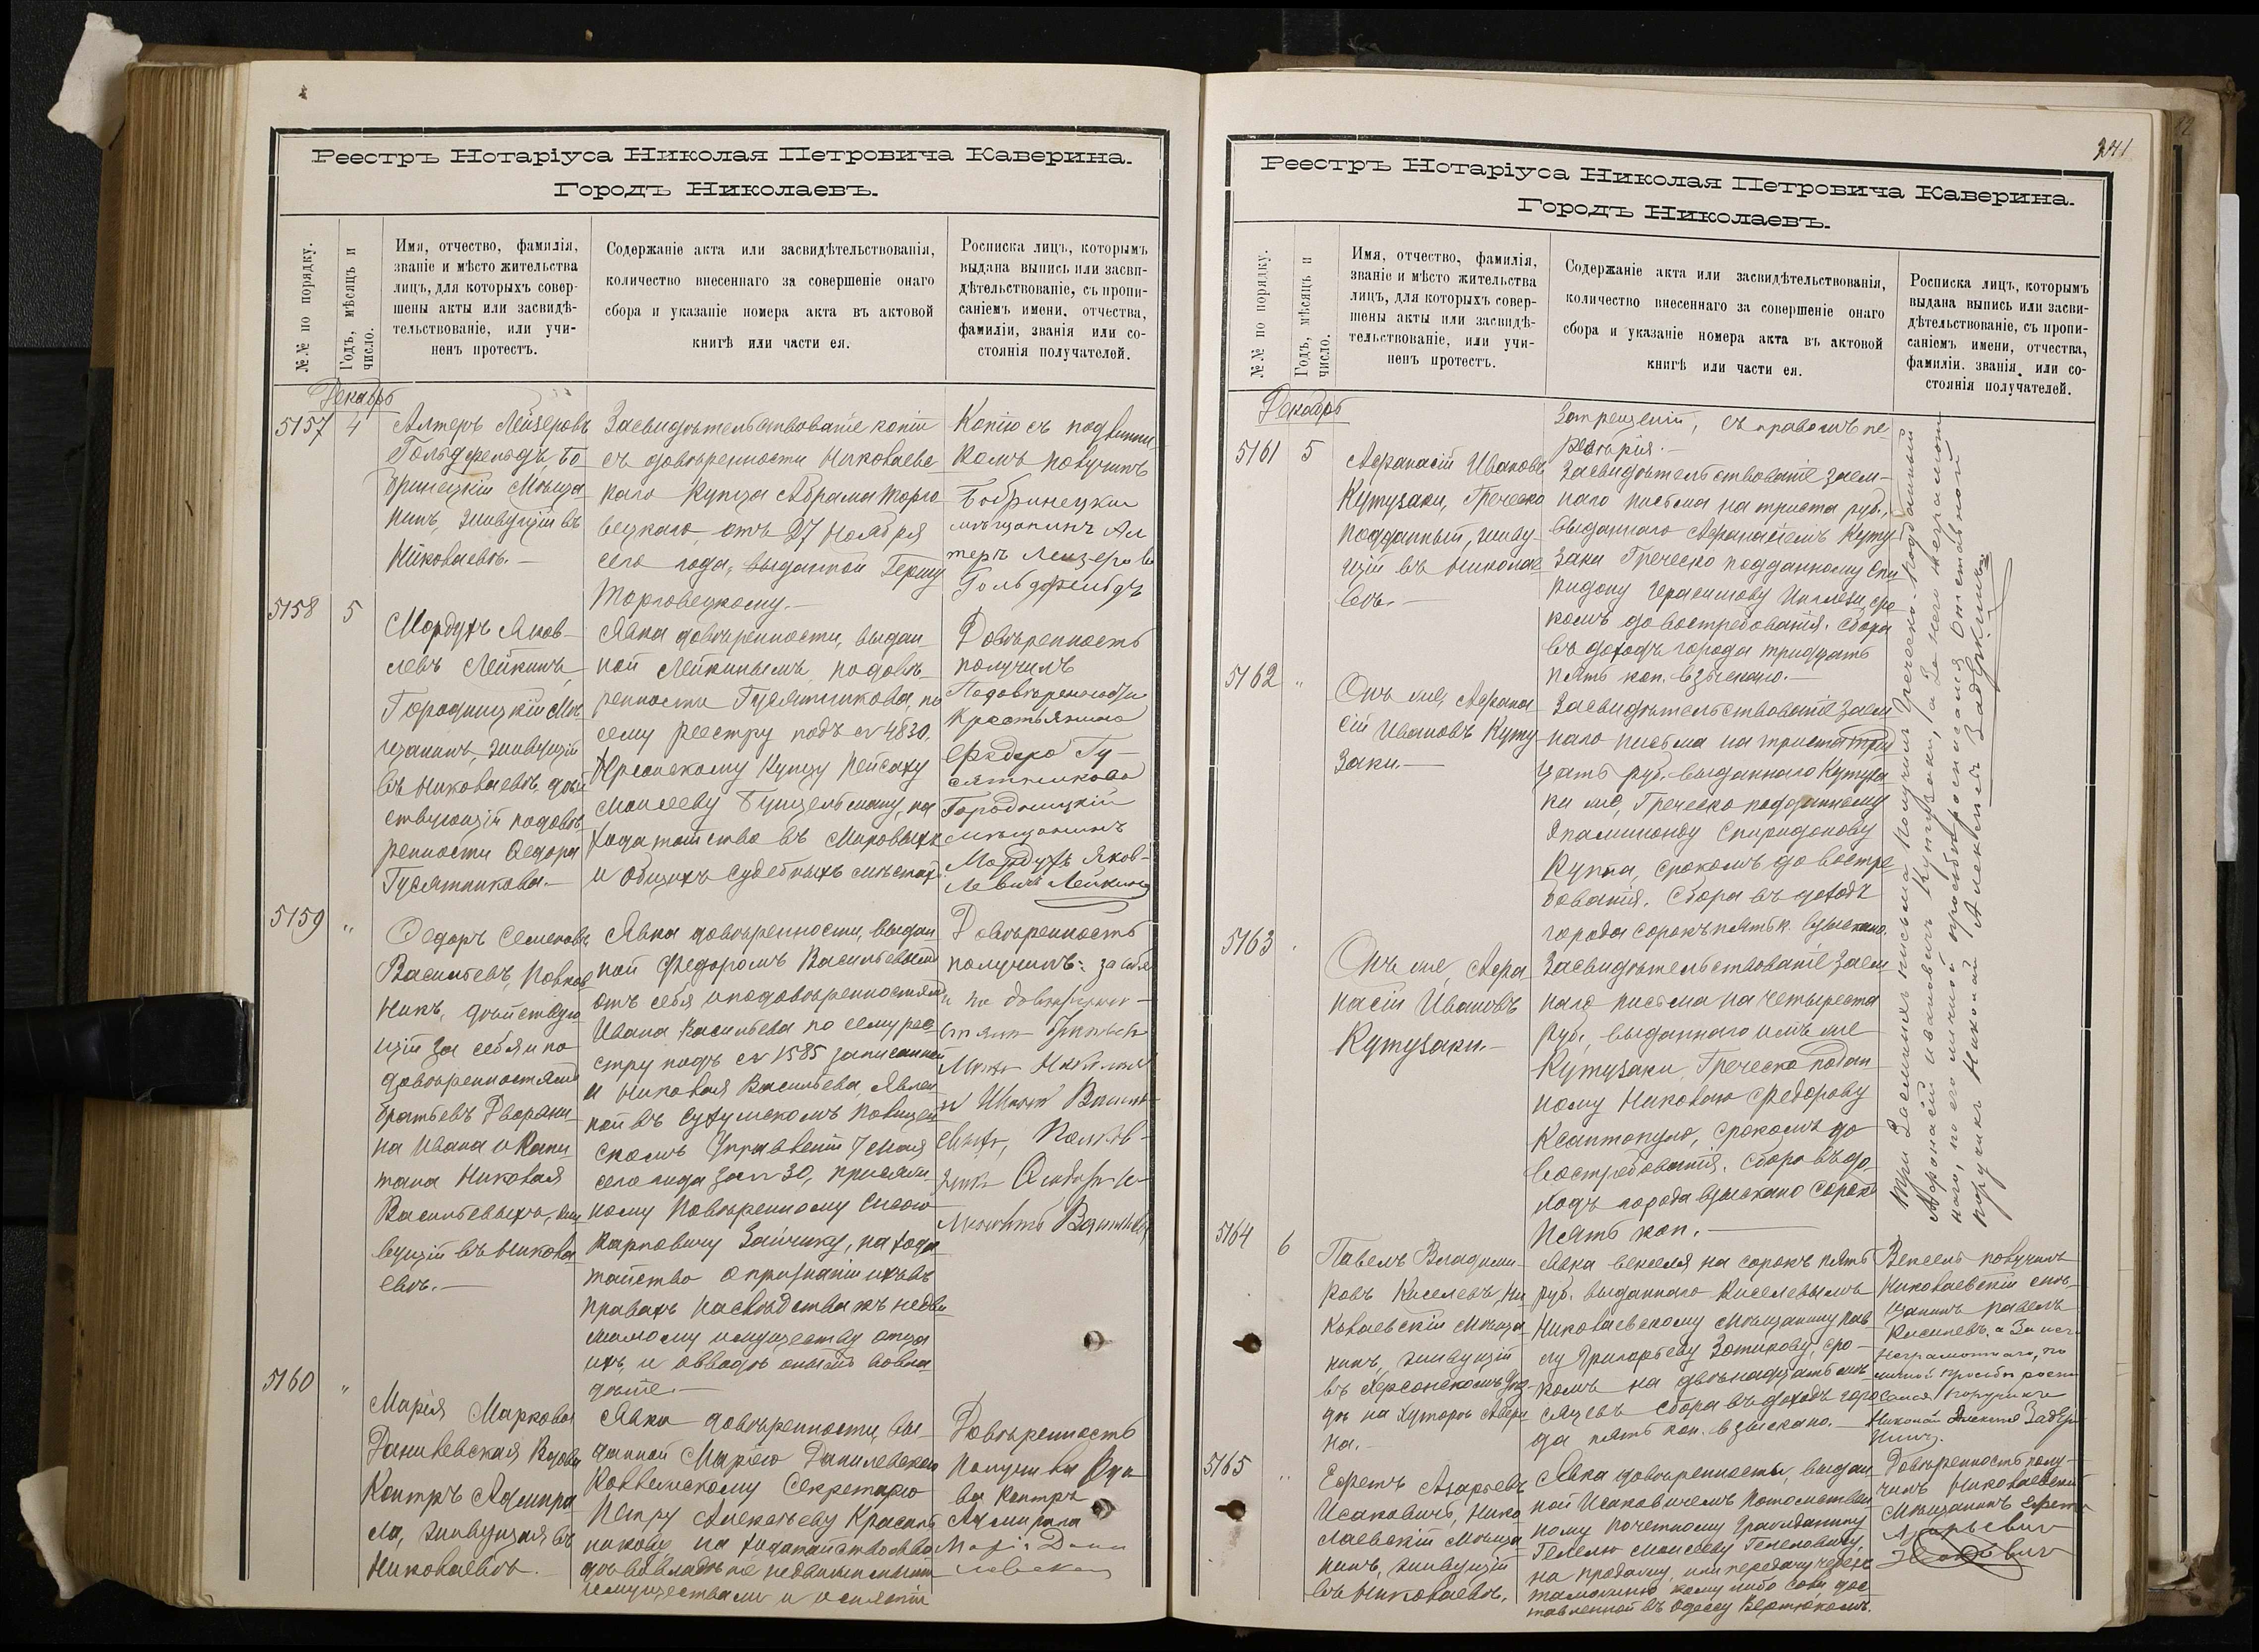 Реестръ Нотаріуса Николая Петровича Каверина.
Городъ Николаевъ.
№№ по порядку.
Годъ, мѣсяцъ и
число.
Имя, отчество, фамилія,
званіе и мѣсто жительства
лицъ, для которыхъ совер-
шены акты или засвидѣ-
тельствованіе, или учи-
ненъ протестъ.
Содержаніе акта или засвидѣтельствованія,
количество внесеннаго за совершеніе онаго
сбора и указаніе номера акта въ актовой
книгѣ или части ея.
Росписка лицъ, которымъ
выдана выпись или засви-
дѣтельствованіе, съ пропи-
саніемъ имени, отчества,
фамиліи, званія или со-
стоянія получателей.
Декабрь
5157
4
Алтеръ Лейзеровъ
Гольдфельдъ, Бо
бринецкій Мѣща
нинъ, живущій въ
Николаевѣ.—
Засвидѣтельствованіе копіи
съ довѣренности Николаевс
каго Купца Абрама Торго
вецкаго, отъ 27 Ноября
сего года, выданной Гершу
Торговецкому.—
Копію съ подлинни
комъ получилъ
Бобринецкій
мѣщанинъ Ал
теръ Лейзеровъ
Гольдфельдъ
5158
5
Мордухъ Яков-
левъ Лейкинъ,
Городищкій Мѣ
щанинъ, живущій
въ Николаевѣ, дѣй
ствующій по довѣ
ренности Федора
Гусятникова.—
Явка довѣренности, выдан
ной Лейкинымъ, по довѣ
ренности Гусятникова, по
сему реестру подъ № 4830,
Херсонскому Купцу Пейсаху
Моисееву Бунцельману, на
ходатайство въ Мировыхъ
и Общихъ судебныхъ мѣстахъ.
Довѣренность
получилъ
По довѣренности
Крестьянина
Федора Гу-
сятникова
Городищкій
мѣщанинъ
Мордухъ Яков-
левичъ Лейкинъ
5159
"
Федоръ Семеновъ
Васильевъ, Полков
никъ, дѣйствую
щій за себя и по
довѣренностямъ
братьевъ Дворяни
на Ивана и Капи
тана Николая
Васильевыхъ, жи
вущій въ Никола
евѣ.—
Явка довѣренности, выдан
ной Федоромъ Васильевымъ
отъ себя и по довѣренностямъ
Ивана Васильева по сему рее
стру подъ № 1585 записанной
и Николая Васильева, явлен
ной въ Сухумскомъ Полицей
скомъ Управленіи 7 мая
сего года за № 30, присяж
ному Повѣренному Сысою
Карповичу Зайчику, на хода
тайство о признаніи ихъ въ
правахъ наслѣдства къ недви
жимому имуществу отца
ихъ, и о вводѣ онымъ во вла
дѣніе.—
Довѣренность
получилъ: за себя
и по довѣреннос-
Николая
и Ивана Василь-
евыхъ, Полков-
никъ Федоръ Се-
меновичъ Васильевъ
5160
"
Марія Маркова
Данилевская Вдова
Контръ Адмира
ла, живущая въ
Николаевѣ.—
Явка довѣренности, вы-
данной Маріею Данилевскою
Коллежскому Секретарю
Петру Алексѣеву Красиль
никову, на ходатайство о вво
дѣ во владѣніе недвижимымъ
имуществомъ и о снятіи
Довѣренность
получила Вдо
ва Контръ
Адмирала
Марія Дани
левская
341
Реестръ Нотаріуса Николая Петровича Каверина.
Городъ Николаевъ.
№№ по порядку.
Годъ, мѣсяцъ и
число.
Имя, отчество, фамилія,
званіе и мѣсто жительства
лицъ, для которыхъ совер-
шены акты или засвидѣ-
тельствованіе, или учи-
ненъ протестъ.
Содержаніе акта или засвидѣтельствованія,
количество внесеннаго за совершеніе онаго
сбора и указаніе номера акта въ актовой
книгѣ или части ея.
Росписка лицъ, которымъ
выдана выпись или засви-
дѣтельствованіе, съ пропи-
саніемъ имени, отчества,
фамиліи. званія или со-
стоянія получателей.
Декабрь
запрещеній, съ правомъ пе-
редовѣрія.—
5161
5
Афанасій Ивановъ
Кутузаки, Греческо
подданный, живу
щій въ Никола
евѣ.—
Засвидѣтельствованіе заем-
наго письма на триста руб.,
выданнаго Афанасіемъ Куту
заки Греческо подданному Спи
ридону Герасимову Инглези, сро
комъ до востребованія. Сбора
въ доходъ города тридцать
пять коп. взыскано.—
5162
"
Онъ же, Афана
сій Ивановъ Куту
заки.—
Засвидѣтельствованіе заем
наго письма на триста трид
цать руб. выданнаго Кутуза
ки же, Греческо подданному
Эпаминонду Спиридонову
Куппа, срокомъ до востре
бованія. Сбора въ доходъ
города сорокъ пять к. взыскано.
5163
Онъ же, Афа
насій Ивановъ
Кутузаки.—
Засвидѣтельствованіе заем
наго письма на четыреста
руб., выданнаго имъ же
Кутузаки, Греческо поддан
ному Николаю Федорову
Ксантопуло, срокомъ до
востребованія. Сбора въ до-
ходъ города взыскано сорокъ
пять коп.—
Три Заемныхъ письма получилъ Греческо-подданный
Афанасій Ивановичъ Кутузаки, а за него неграмот-
наго, по его личной просьбѣ росписался Отставной
поручикъ Николай Алексѣевъ Задеркинъ.
5164
6
Павелъ Владими-
ровъ Киселевъ, Ни
колаевскій Мѣща
нинъ, живущій
въ Херсонскомъ Уѣз
дѣ на хуторѣ Авери
на.—
Явка векселя на сорокъ пять
руб. выданнаго Киселевымъ
Николаевскому Мѣщанину Пав
лу Григорьеву Зотикову, сро-
комъ на двѣнадцать мѣ
сяцевъ сбора въ доходъ горо
да пять коп. взыскано.—
Вексель получилъ
Николаевскій мѣ-
щанинъ Павелъ
Киселевъ, а за него
неграмотнаго, по
личной просьбѣ роспи
сался поручикъ
Николай Алексѣевъ Задер
кинъ.
5165
"
Ефремъ Азарьевъ
Исаковичъ, Нико
лаевскій Мѣща
нинъ, живущій
въ Николаевѣ.
Явка довѣренности, выдан
ной Исаковичемъ Потомствен
ному Почетному Гражданину
Гемелю Моисееву Гемеловичу,
на продажу, или передачу черезъ
таможню кому либо соли дос
тавленной въ Одессу Вертюкомъ.
Довѣренность полу-
чилъ Николаевскій
Мѣщанинъ Ефремъ
Азарьевич